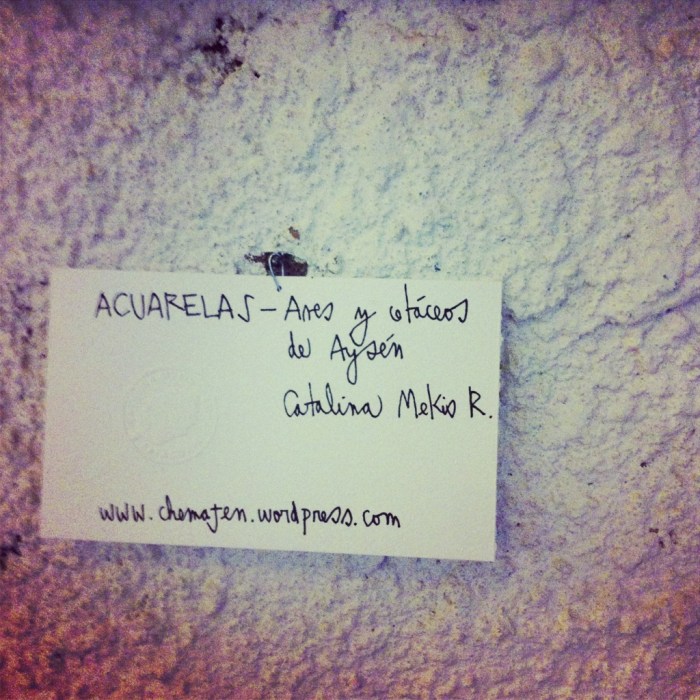 ACUARELAS - Aves y cetáceos
de Aysén
Catalina Mekis R.
www.chemajen.wordpress.com